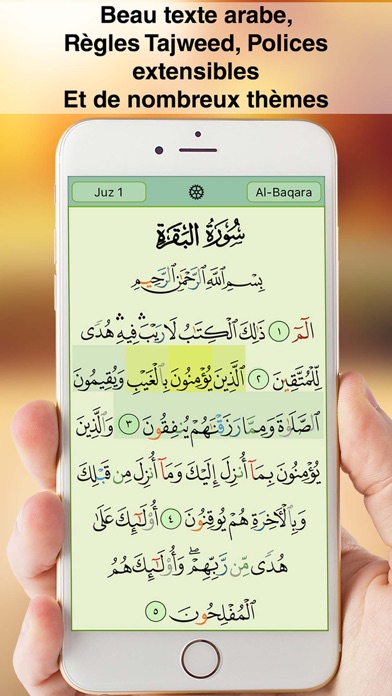 Beau texte arabe,
Règles Tajweed, Polices
extensibles
Et de nombreux thèmes
Juz 1
Al-Baqara
سُورَةُ البَقَرَةِ
بِسْمِ ٱللَّهِ ٱلرَّحْمَٰنِ ٱلرَّحِيمِ
الٓمٓ ١ ذَٰلِكَ ٱلْكِتَٰبُ لَا رَيْبَ ۛ فِيهِ ۛ هُدًى
لِّلْمُتَّقِينَ ٢ ٱلَّذِينَ يُؤْمِنُونَ بِٱلْغَيْبِ وَيُقِيمُونَ
ٱلصَّلَوٰةَ وَمِمَّا رَزَقْنَٰهُمْ يُنفِقُونَ ٣ وَٱلَّذِينَ
يُؤْمِنُونَ بِمَآ أُنزِلَ إِلَيْكَ وَمَآ أُنزِلَ مِن قَبْلِكَ
وَبِٱلْأٓخِرَةِ هُمْ يُوقِنُونَ ٤ أُو۟لَٰٓئِكَ عَلَىٰ
هُدًى مِّن رَّبِّهِمْ ۖ وَأُو۟لَٰٓئِكَ هُمُ
ٱلْمُفْلِحُونَ ٥